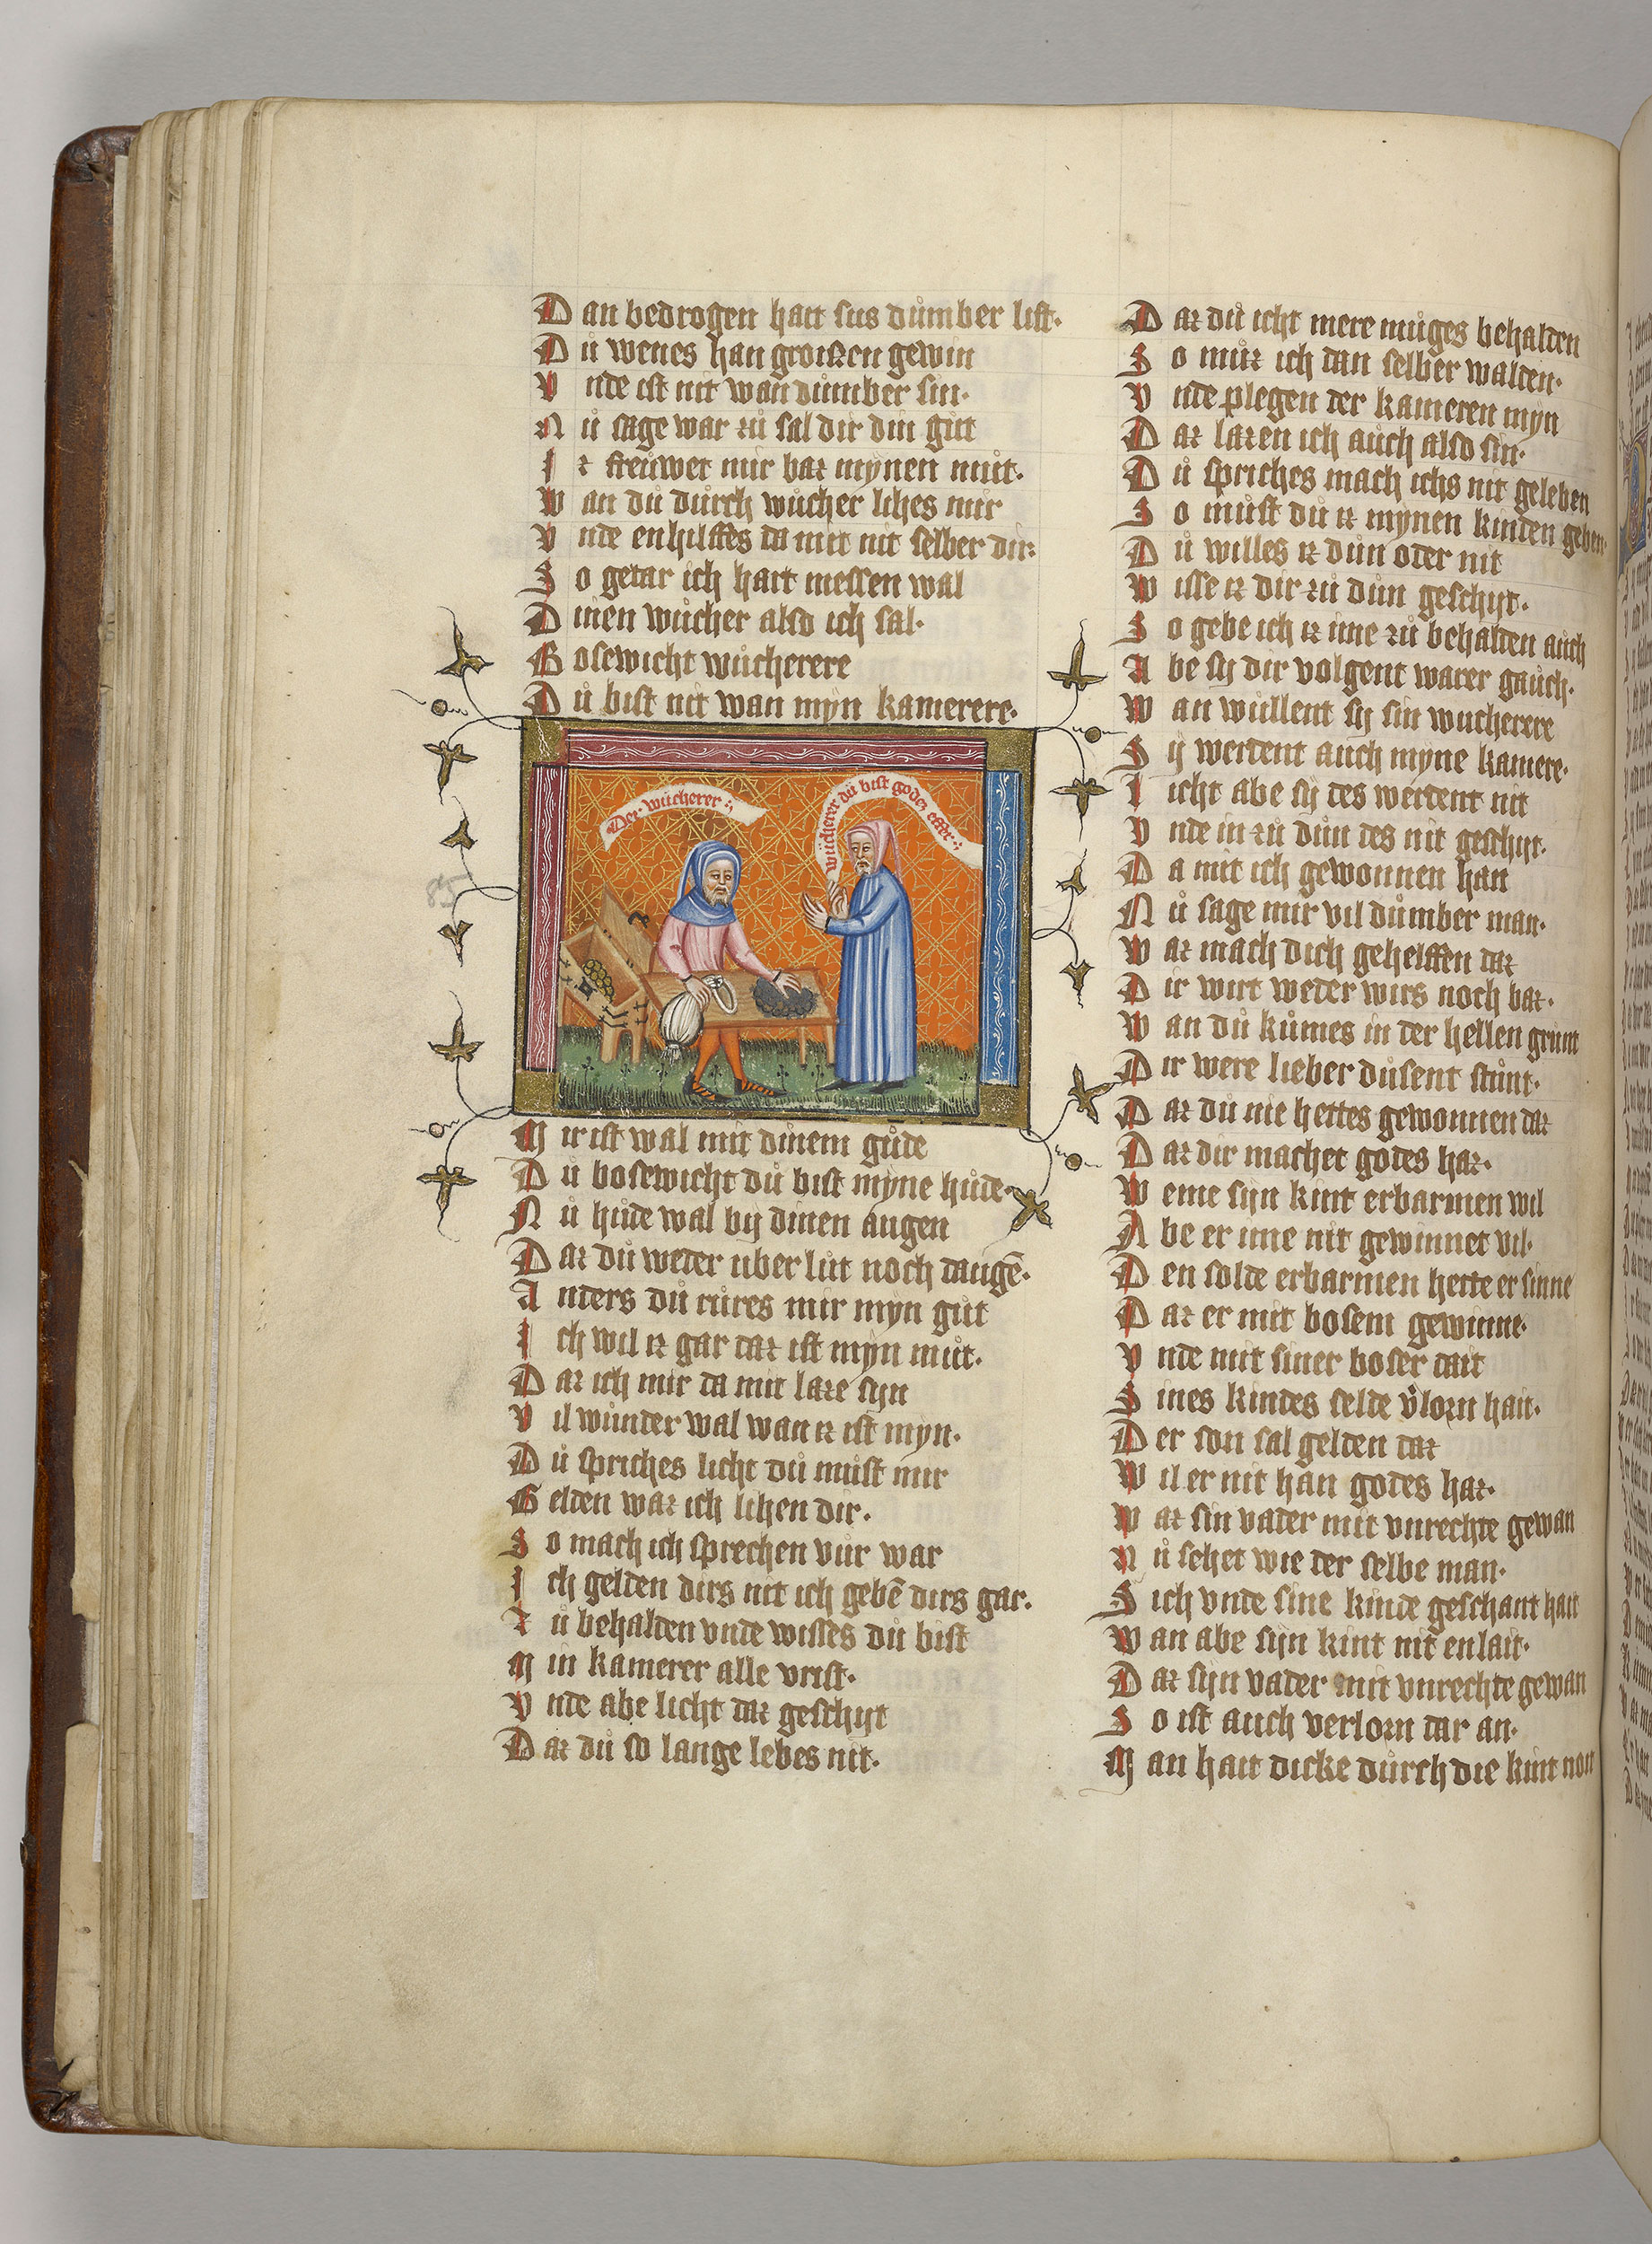 Dan bedrogen hait sus důmber list.
Dů wenes han groißen gewin
Vnde ist nit wan důmber sin.
Nů sage waz zů sal dir din gůt
Iz freůwet mir baz mynen můt.
Wan dů důrch wůcher lihes mir
Vnde enhilffes da mit nit selber dir.
So getar ich hart messen wal
Dinen wůcher also ich sal.
Bosewicht wůcherere
Dů bist nit wan myn kamerere.
Der wůcherer
wůcherer dů bist godez
Mir ist wal mit dinem gůde
Dů bosewicht dů bist myne hůde.
Nů hůde wal bij dinen augen
Daz dů weder uber lůt noch daugē.
Anders dů růres mir myn gůt
Ich wil iz gar daz ist myn můt.
Daz ich mir da mit laze sijn
Vil wůnder wal wan iz ist myn.
Dů spriches licht dů můst mir
Gelden waz ich lihen dir.
So mach ich sprechen vůr war
Ich gelden dirs nit ich gebē dirs gar.
Zů behalden vnde wisses dů bist
Min kamerer alle vrist.
Vnde abe licht daz geschijt
Daz dů so lange lebes nit.
Daz dů icht mere můges behalden
So můz ich dan selber walden.
Vnde plegen der kameren myn
Daz lazen ich aůch also sin.
Dů spriches mach ichs nit geleben
So můst dů iz mynen kinden geben
Dů willes iz důn oder nit
Wisse iz dir zů důn geschijt.
So gebe ich iz ime zů behalden aůch
Abe sij dir volgent warer gaůch.
Wan wůllent sij sin wucherere
Sij werdent auch myne kamere.
Icht abe sij des werdent nit
Vnde in zů důn des nit geschijt.
Da mit ich gewonnen han
Nů sage mir vil důmber man.
Waz mach dich gehelffen daz
Dir wirt weder wirs noch baz.
Wan dů kůmes in der hellen grunt
Dir were lieber důsent stůnt.
Daz dů nie hettes gewonnen daz
Daz dir machet godes haz.
Weme sijn kint erbarmen wil
Abe er ime nit gewinnet vil.
Den solde erbarmen hette er sinne
Daz er mit bosem gewinne.
Vnde mit siner boser dait
Sines kindes selde v̉lorn hait.
Der son sal gelden daz
Wil er nit han godes haz.
Waz sin vader mit vnrechte gewan
Nů sehet wie der selbe man.
Sich vnde sine kinde geschant hait
Wan abe sijn kint nit enlait.
Daz sijn vader mit vnrechte gewan
So ist auch verlorn dar an.
Man hait dicke důrch die kint noit